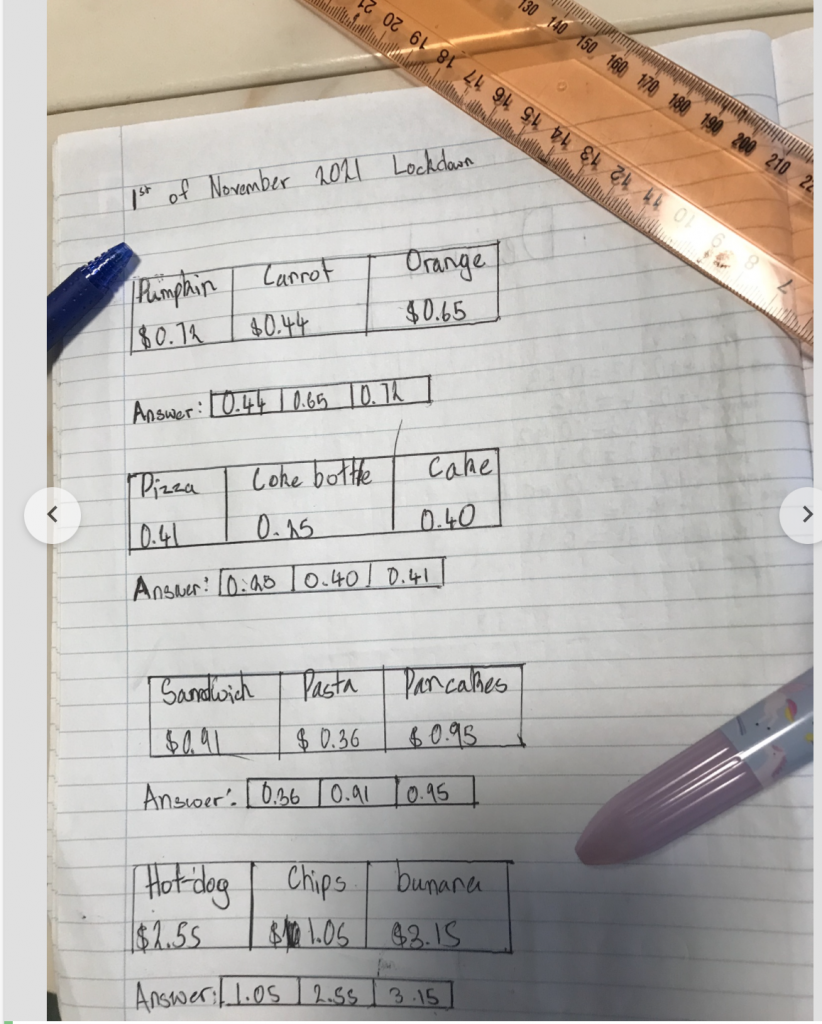 130 140 150 160 170 180 190 200 210 22
21 20 19 18 17 16 15 14 13 12 11 10 9 8 7
1st of November 2021 Lockdown
Pumpkin Carrot Orange
$0.72 $0.44 $0.65
Answer: 0.44 0.65 0.72
Pizza Coke bottle Cake
0.41 0.25 0.40
Answer: 0.25 0.40 0.41
Sandwich Pasta Pancakes
$0.91 $0.36 $0.95
Answer: 0.36 0.91 0.95
Hot-dog Chips bunana
$2.55 $1.05 $3.15
Answer: 1.05 2.55 3.15